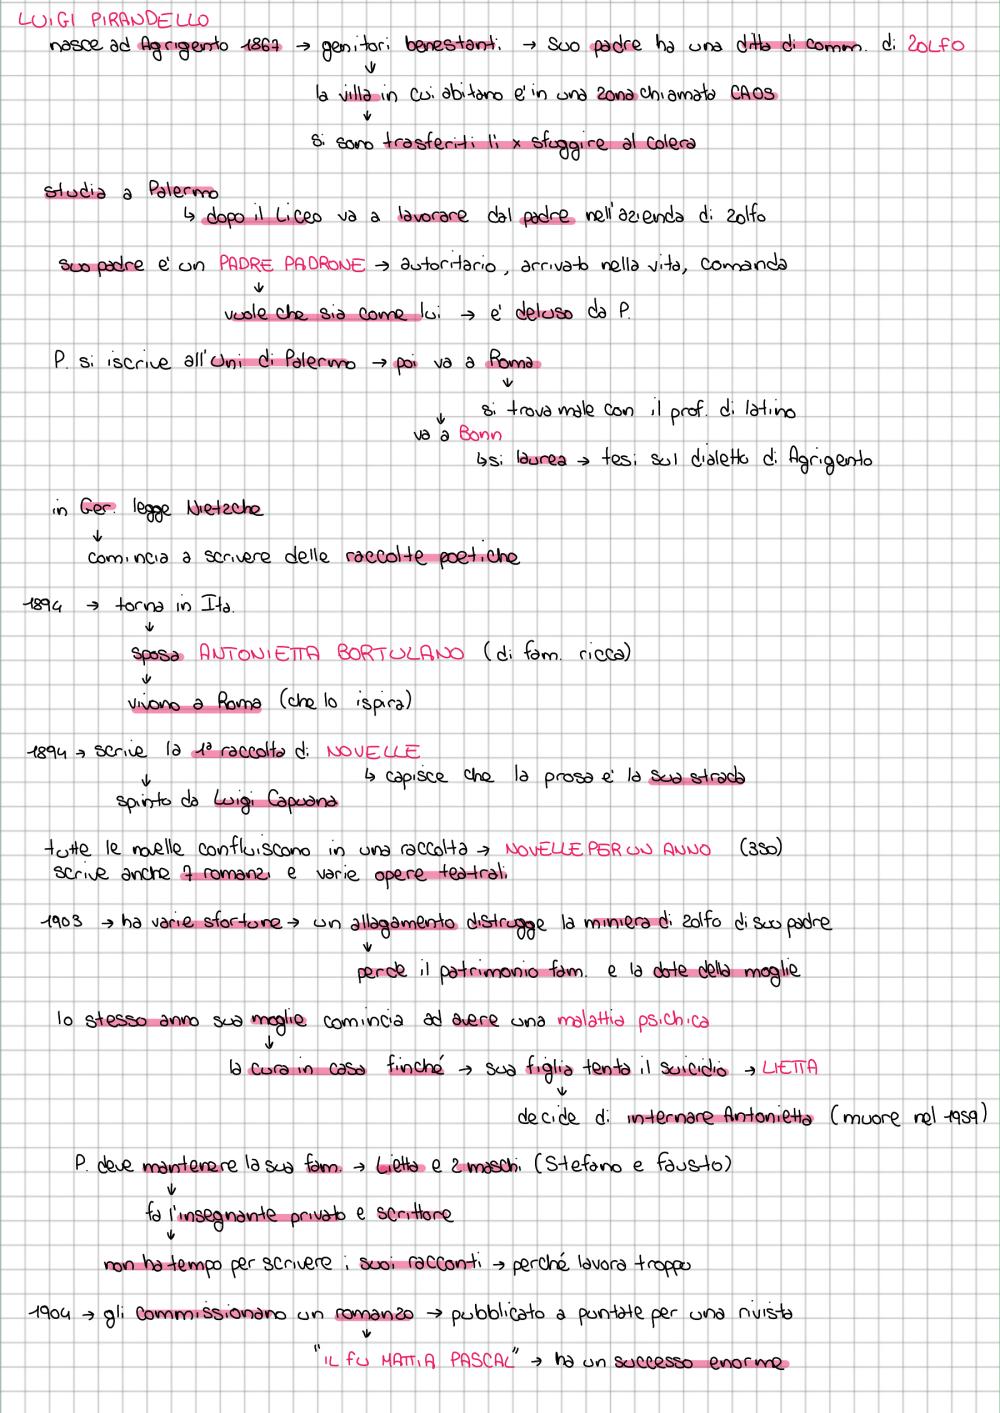 LUIGI PIRANDELLO
nasce ad Agrigento 1867 → genitori benestanti → suo padre ha una ditta di comm. di ZOLFO
↓
la villa in cui abitano e' in una zona chiamata CAOS
↓
si sono trasferiti lì x sfuggire al colera
studia a Palermo
↳ dopo il Liceo va a lavorare dal padre nell'azienda di zolfo
suo padre e' un PADRE PADRONE → autoritario, arrivato nella vita, comanda
↓
vuole che sia come lui → e' deluso da P.
P. si iscrive all'Uni di Palermo → poi va a Roma
↓
si trova male con il prof. di latino
↓
va a Bonn
↳ si laurea → tesi sul dialetto di Agrigento
in Ger. legge Nietzche
↓
comincia a scrivere delle raccolte poetiche
1894 → torna in Ita.
↓
sposa ANTONIETTA BORTULANO (di fam. ricca)
↓
vivono a Roma (che lo ispira)
1894 → scrive la 1ª raccolta di NOVELLE
↓ ↳ capisce che la prosa e' la sua strada
spinto da Luigi Capuana
tutte le novelle confluiscono in una raccolta → NOVELLE PER UN ANNO (350)
scrive anche 7 romanzi e varie opere teatrali
1903 → ha varie sfortune → un allagamento distrugge la miniera di zolfo di suo padre
↓
perde il patrimonio fam. e la dote della moglie
lo stesso anno sua moglie comincia ad avere una malattia psichica
↓
la cura in casa finché → sua figlia tenta il suicidio → LIETTA
↓
decide di internare Antonietta (muore nel 1959)
P. deve mantenere la sua fam. → Lietta e 2 maschi (Stefano e Fausto)
↓
fa l'insegnante privato e scrittore
↓
non ha tempo per scrivere i suoi racconti → perché lavora troppo
1904 → gli commissionano un romanzo → pubblicato a puntate per una rivista
↓
"IL FU MATTIA PASCAL" → ha un successo enorme